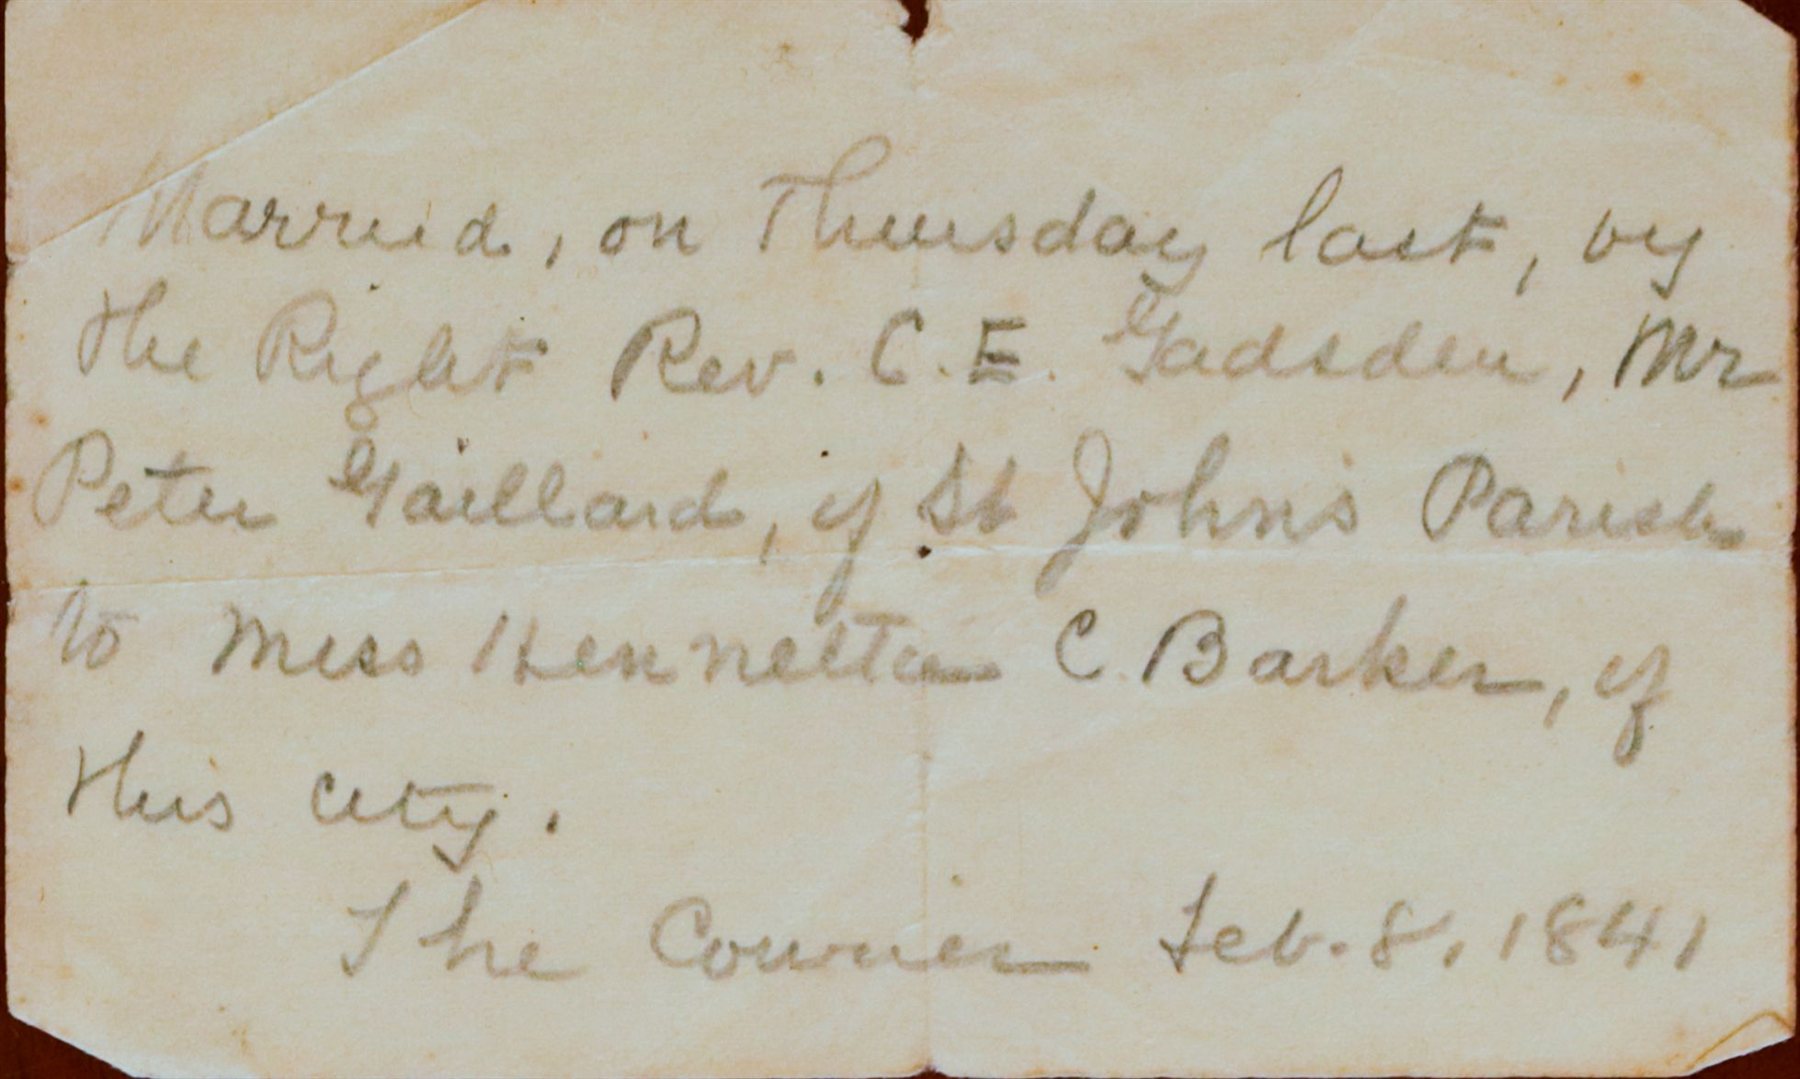 Married, on Thursday last, by
the Right Rev. C. E. Gadsden, Mr
Peter Gaillard, of St Johns Parish
to Miss Hennetta C. Barker, of
this city.
The Courier Feb. 8, 1841